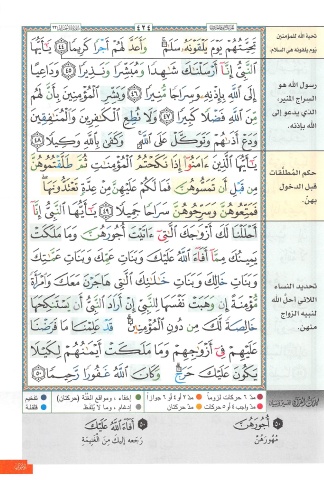 ٤٢٤
تَحِيَّتُهُمْ يَوْمَ يَلْقَوْنَهُۥ سَلَٰمٌ وَأَعَدَّ لَهُمْ أَجْرًا كَرِيمًا ٤٤ يَٰٓأَيُّهَا
ٱلنَّبِىُّ إِنَّآ أَرْسَلْنَٰكَ شَٰهِدًا وَمُبَشِّرًا وَنَذِيرًا ٤٥ وَدَاعِيًا
إِلَى ٱللَّهِ بِإِذْنِهِۦ وَسِرَاجًا مُّنِيرًا ٤٦ وَبَشِّرِ ٱلْمُؤْمِنِينَ بِأَنَّ لَهُم
مِّنَ ٱللَّهِ فَضْلًا كَبِيرًا ٤٧ وَلَا تُطِعِ ٱلْكَٰفِرِينَ وَٱلْمُنَٰفِقِينَ
وَدَعْ أَذَىٰهُمْ وَتَوَكَّلْ عَلَى ٱللَّهِ وَكَفَىٰ بِٱللَّهِ وَكِيلًا ٤٨
يَٰٓأَيُّهَا ٱلَّذِينَ ءَامَنُوٓا۟ إِذَا نَكَحْتُمُ ٱلْمُؤْمِنَٰتِ ثُمَّ طَلَّقْتُمُوهُنَّ
مِن قَبْلِ أَن تَمَسُّوهُنَّ فَمَا لَكُمْ عَلَيْهِنَّ مِنْ عِدَّةٍ تَعْتَدُّونَهَا
فَمَتِّعُوهُنَّ وَسَرِّحُوهُنَّ سَرَاحًا جَمِيلًا ٤٩ يَٰٓأَيُّهَا ٱلنَّبِىُّ إِنَّآ
أَحْلَلْنَا لَكَ أَزْوَٰجَكَ ٱلَّٰتِىٓ ءَاتَيْتَ أُجُورَهُنَّ وَمَا مَلَكَتْ
يَمِينُكَ مِمَّآ أَفَآءَ ٱللَّهُ عَلَيْكَ وَبَنَاتِ عَمِّكَ وَبَنَاتِ عَمَّٰتِكَ
وَبَنَاتِ خَالِكَ وَبَنَاتِ خَٰلَٰتِكَ ٱلَّٰتِى هَاجَرْنَ مَعَكَ وَٱمْرَأَةً
مُّؤْمِنَةً إِن وَهَبَتْ نَفْسَهَا لِلنَّبِىِّ إِنْ أَرَادَ ٱلنَّبِىُّ أَن يَسْتَنكِحَهَا
خَالِصَةً لَّكَ مِن دُونِ ٱلْمُؤْمِنِينَ قَدْ عَلِمْنَا مَا فَرَضْنَا
عَلَيْهِمْ فِىٓ أَزْوَٰجِهِمْ وَمَا مَلَكَتْ أَيْمَٰنُهُمْ لِكَيْلَا
يَكُونَ عَلَيْكَ حَرَجٌ وَكَانَ ٱللَّهُ غَفُورًا رَّحِيمًا ٥٠
تحية الله للمؤمنين
يوم يلقونه هي السلام.
رسول الله هو
السراج المنير،
الذي يدعو إلى
الله بإذنه.
حكم المطلَّقات
قبل الدخول
بهنّ.
تحديد النساء
اللاتي أحلّ الله
لنبيه الزواج
منهن.
مدّ ٦ حركات لزوماً مدّ ٢ أو ٤ أو ٦ جوازاً إخفاء، ومواقع الغُنَّة (حركتان) تفخيم
مدّ واجب ٤ أو ٥ حركات مدّ حركتان إدغام، وما لا يُلفَظ قلقلة
٥٠ أُجُورَهُنَّ
مُهُورَهُنَّ
٥٠ أَفَآءَ ٱللَّهُ عَلَيْكَ
رَجَعَه إليكَ مِنَ الغَنِيمَةِ